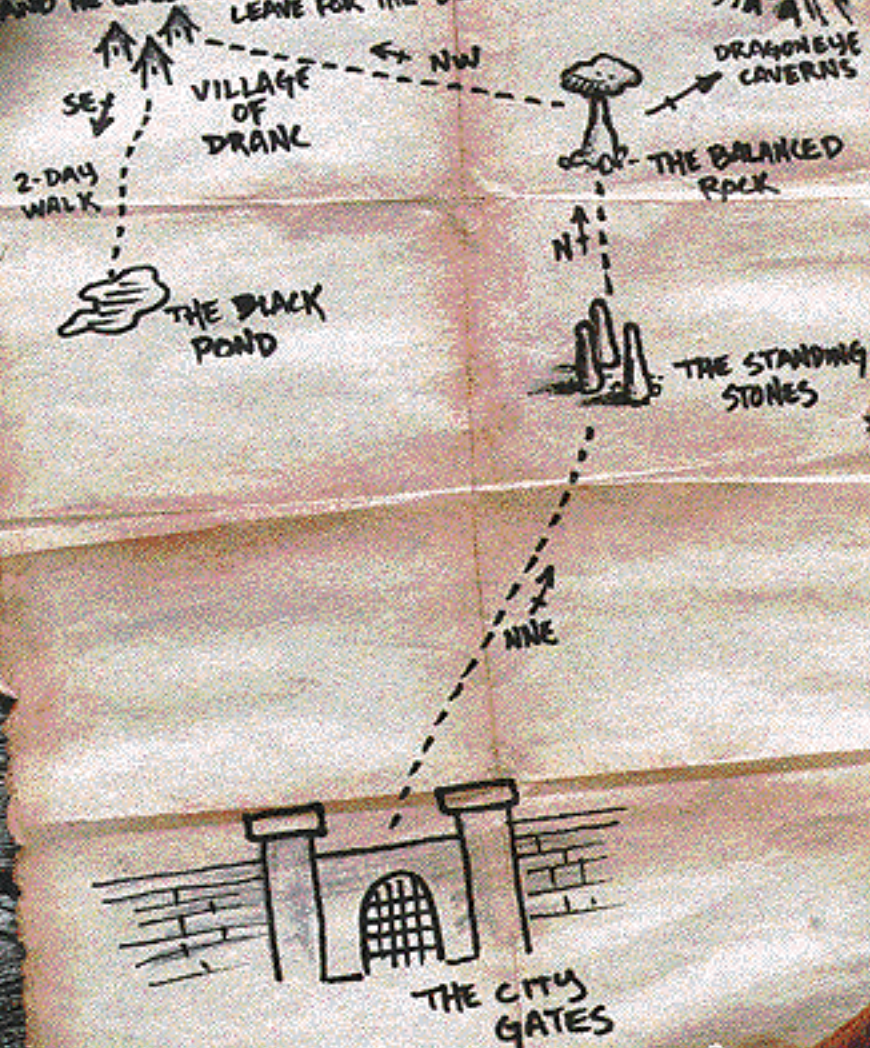 LEAVE FOR THE
DRAGONEYE
CAVERNS
NW
VILLAGE
OF
DRANC
SE
2-DAY
WALK
THE BALANCED
ROCK
N
THE BLACK
POND
THE STANDING
STONES
NNE
THE CITY
GATES